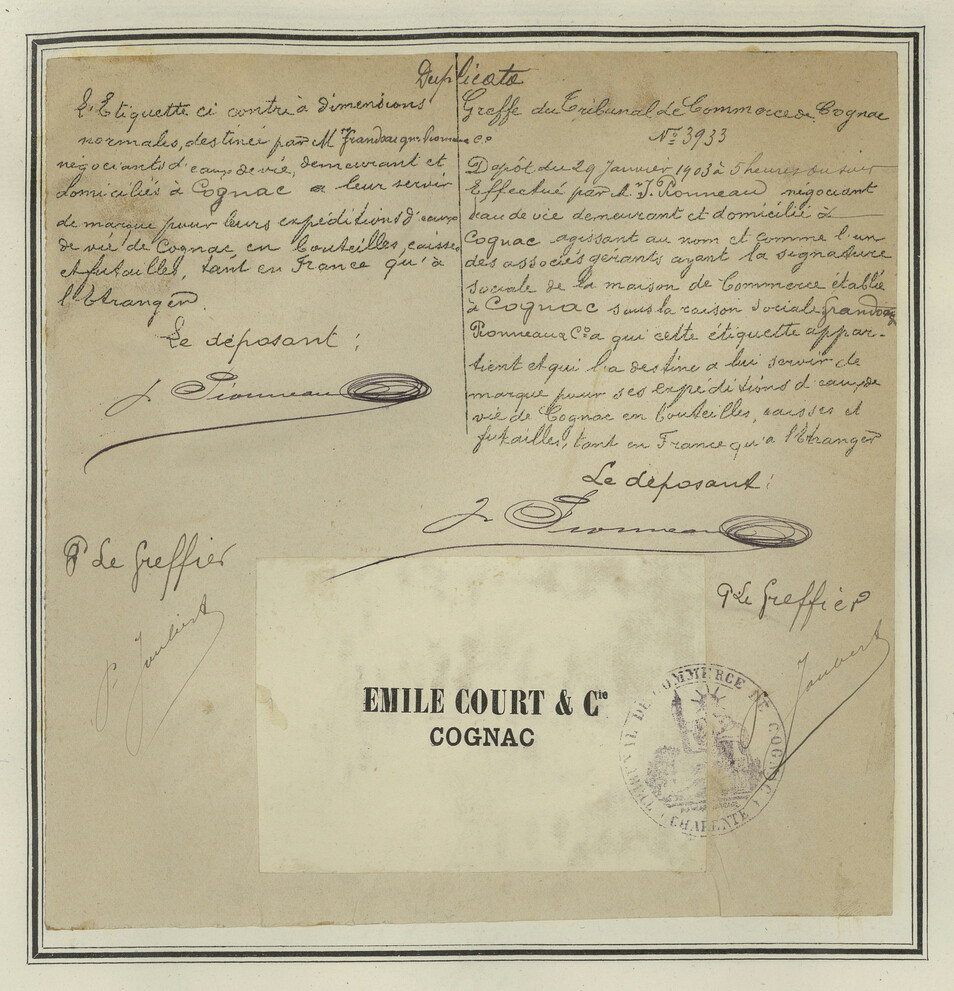 Duplicata
L'Etiquette ci contre à dimensions
normales, destinée par M Grandsacques Pionneau & Co
négociants d'eaux de vie, demeurant et
domiciliés à Cognac a leur servir
de marque pour leurs expéditions d'eaux
de vie de Cognac, en bouteilles, caisses
et futailles, tant en France qu'à
l'Etranger.
Le déposant :
J Pionneau
P Le Greffier
P. Joubert
Greffe du Tribunal de Commerce de Cognac
No 3933
Dépôt du 29 Janvier 1903 à 5 heures du soir
Effectué par M. J. Pionneau négociant
eau de vie demeurant et domicilié à
Cognac agissant au nom et comme l'un
des associés gérants ayant la signature
sociale de la maison de Commerce établie
à Cognac sous la raison sociale
Pionneau & Co à qui cette étiquette appar-
tient et qui l'a destine a lui servir de
marque pour ses expéditions d'eaux de
vie de Cognac en bouteilles, caisses et
futailles, tant en France qu'a l'Etranger
Le déposant :
J Pionneau
P Le Greffier
Joubert
EMILE COURT & Cie
COGNAC
TRIBUNAL DE COMMERCE DE COGNAC
CHARENTE